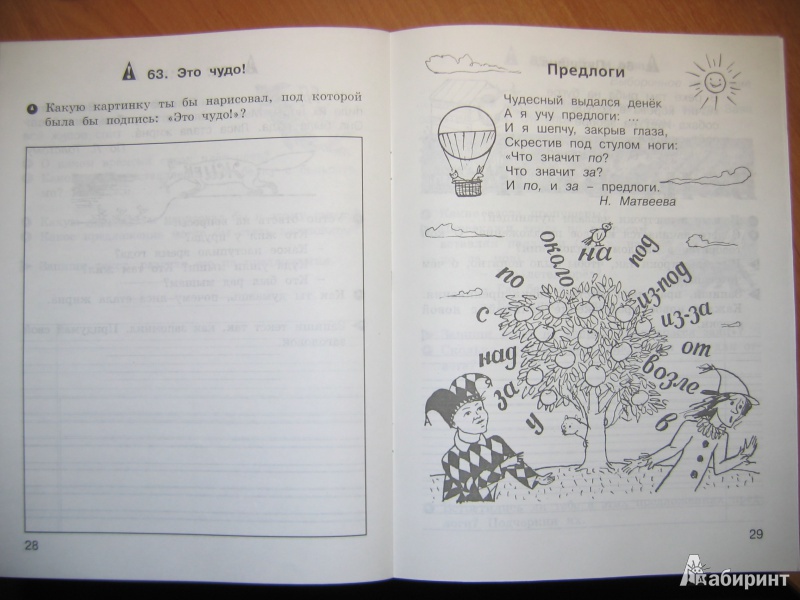 63. Это чудо!
Какую картинку ты бы нарисовал, под которой
была бы подпись: «Это чудо!»?
28
Предлоги
Чудесный выдался денёк
А я учу предлоги: ...
И я шепчу, закрыв глаза,
Скрестив под стулом ноги:
«Что значит по?
Что значит за?
И по, и за – предлоги.
Н. Матвеева
на
около
под
по
из-под
с
из-за
над
от
за
возле
у
в
29
Лабиринт